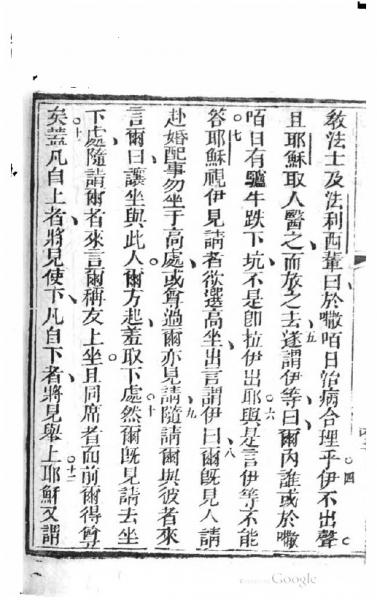 教法士及法利西輩曰於嗽咟日治病合理乎伊不出聲四
且耶穌取人醫之而放之去五遂謂伊等曰爾內誰或於嗽
咟日有驢牛跌下坑不是即拉伊出耶六與是言伊等不能
答七耶穌視伊見請者欲選高坐出言謂伊曰八爾既見人請
赴婚配事勿坐于高處或有尊過爾亦見請九隨請爾與彼者來
言爾曰讓坐與此人爾方起羞取下處十然爾既見請去坐
下處隨請爾者來言爾稱友上坐且同席者面前爾得尊
矣十一蓋凡自上者將見使下凡自下者將見舉上十二耶穌又謂
Google